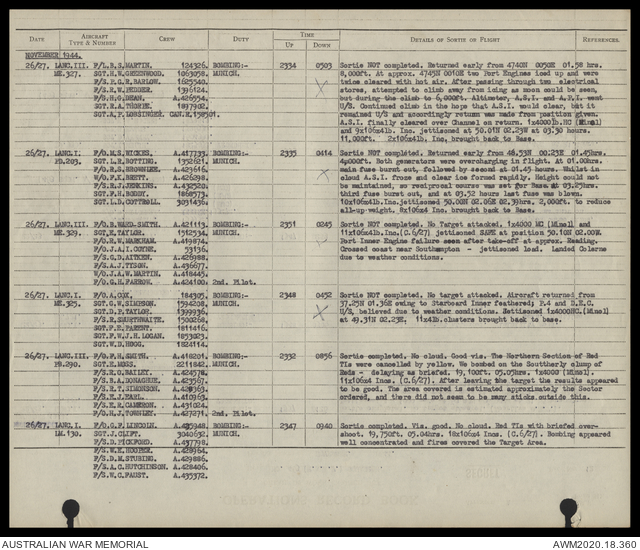 DATE AIRCRAFT TYPE & NUMBER CREW DUTY TIME UP DOWN DETAILS OF SORTIE OR FLIGHT REFERENCES.
NOVEMBER 1944.
26/27. LANC.III. F/L.B.S.MARTIN. 124326. BOMBING:- 2334 0503 Sortie NOT completed. Returned early from 4740N 0050E 01.58 hrs.
ME.327. SGT.H.W.GREENWOOD. 1063058. MUNICH. 8,000ft. At approx. 4745N 0010E two Port Engines iced up and were
F/S.P.G.R.BARLOW. 1625540. twice cleared with hot air. After passing through two electrical
F/S.R.W.PEDDER. 1396124. storms, attempted to climb away from icing as moon could be seen,
F/S.H.O.DEAN. A.426554. but during the climb to 6,000ft. Altimeter, A.S.I. and A.P.I. went
SGT.R.A.THORPE. 1897902. U/S. Continued climb in the hope that A.S.I. would clear, but it
SGT.A.P.LORSINGER. CAN.R.158501. remained U/S and accordingly return was made from position given.
A.S.I. finally cleared over Channel on return. 1x4000lb.HC (Minol)
and 9x106x4lb. Inc. jettisoned at 50.01N 02.23W at 03.30 hours.
11,000ft. 2x106x4lb. Inc. brought back to base.
26/27. LANC.I. F/O.M.S.WICKES. A.417733. BOMBING:- 2335 0414 Sortie NOT completed. Returned early from 48.53N 00.23E 01.45hrs.
PD.203. SGT.L.R.BOTTING. 1352621. MUNICH. 4,000ft. Both generators were overcharging in flight. At 01.00hrs.
F/O.R.S.BROWNLEE. A.423616. main fuse burnt out, followed by second at 01.45 hours. Whilst in
W/O.F.K.BRETT. A.426298. cloud A.S.I. froze and clear ice formed rapidly. Height could not
F/S.R.J.JENKINS. A.432520. be maintained, so reciprocal course was set for Base at 03.25hrs.
SGT.F.H.BODDY. 1868573. third fuse burnt out, and at 03.52 hours last fuse was blown.
SGT.L.D.COTTROLL. 3031436. 10x106x4lb.Inc.jettisoned 50.00N 02.06E 02.39hrs. 2,000ft. to reduce
all-up-weight. 8x106x4 Inc. brought back to base.
26/27. LANC.I. F/O.B.WARD-SMITH. A.421113. BOMBING:- 2351 0245 Sortie NOT completed. No Target attacked. 1x4000 MC (Minol) and
ME.329. SGT.E.TAYLOR. 1512534. MUNICH. 11x106x4lb.Inc.(C.6/27) jettisoned SAFE at position 50.10N 02.00W.
F/O.R.W.MARKHAM. A.419874. Port Inner Engine failure seen after take-off at approx. Reading.
W/O.J.A.I.COYNE. 53136. Crossed coast near Southampton - jettisoned load. Landed Colerne
F/S.G.D.AITKEN. A.426988. due to weather conditions.
F/S.A.J.TYSON. A.436677.
W/O.J.A.W.MARTIN. A.418445.
F/O.G.H.FARROW. A.424100. 2nd. Pilot.
26/27. LANC.I. F/O.A.COX. 184305. BOMBING:- 2348 0452 Sortie NOT completed. No target attacked. Aircraft returned from
ME.325. SGT.G.W.SIMPSON. 1594208. MUNICH. 37.25N 01.36E owing to Starboard Inner feathered; P.4 and D.R.C.
SGT.D.P.TAYLOR. 1399936. U/S, believed due to weather conditions. Jettisoned 1x4000HC.(Minol)
F/S.R.SMURTHWAITE. 1500260. at 49.31N 02.23E, 11x4lb.clusters brought back to base.
SGT.F.E.PARENT. 1811416.
SGT.F.W.J.H.LOGAN. 1853023.
SGT.W.D.HOGG. 1824114.
26/27. LANC.III. F/O.F.H.SMITH. A.418201. BOMBING:- 2332 0856 Sortie completed. No cloud. Good vis. The Northern Section of Red
PB.290. SGT.E.MONS. 2211842. MUNICH. TIs were cancelled by yellow. We bombed on the Soutthernly clump of
F/S.R.O.BAILEY. A.424578. Reds - delaying as briefed. 19,100ft. 05.05hrs. 1x4000 (Minol).
F/S.B.A.DONAGHUE. A.423567. 11x106x4 Incs. (C.6/27). After leaving the target the results appeared
F/S.R.T.SIMONSON. A.428363. to be good. The area covered is estimated approximately the Sector
F/S.K.J.EARL. A.410963. ordered, and there did not seem to be many sticks outside this.
F/S.R.CAMERON. A.431024.
F/O.H.J.TOWNLEY. A.427271. 2nd. Pilot.
26/27. LANC.I. F/O.G.F.LINCOLN. A.425948. BOMBING:- 2347 0940 Sortie completed. Vis. good. No cloud. Red TIs with briefed over-
LM.130. SGT.J.CLIFT. 3040632. MUNICH. shoot. 19,750ft. 05.04hrs. 18x106x4 Incs. (C.6/27). Bombing appeared
F/S.D.PICKFORD. A.437798. well concentrated and fires covered the Target Area.
F/S.W.E.HOOPER. A.428964.
F/S.D.M.STUBING. A.429886.
F/S.A.C.HUTCHINSON. A.428406.
F/S.W.C.FAUST. A.435372.
AUSTRALIAN WAR MEMORIAL AWM2020.18.360